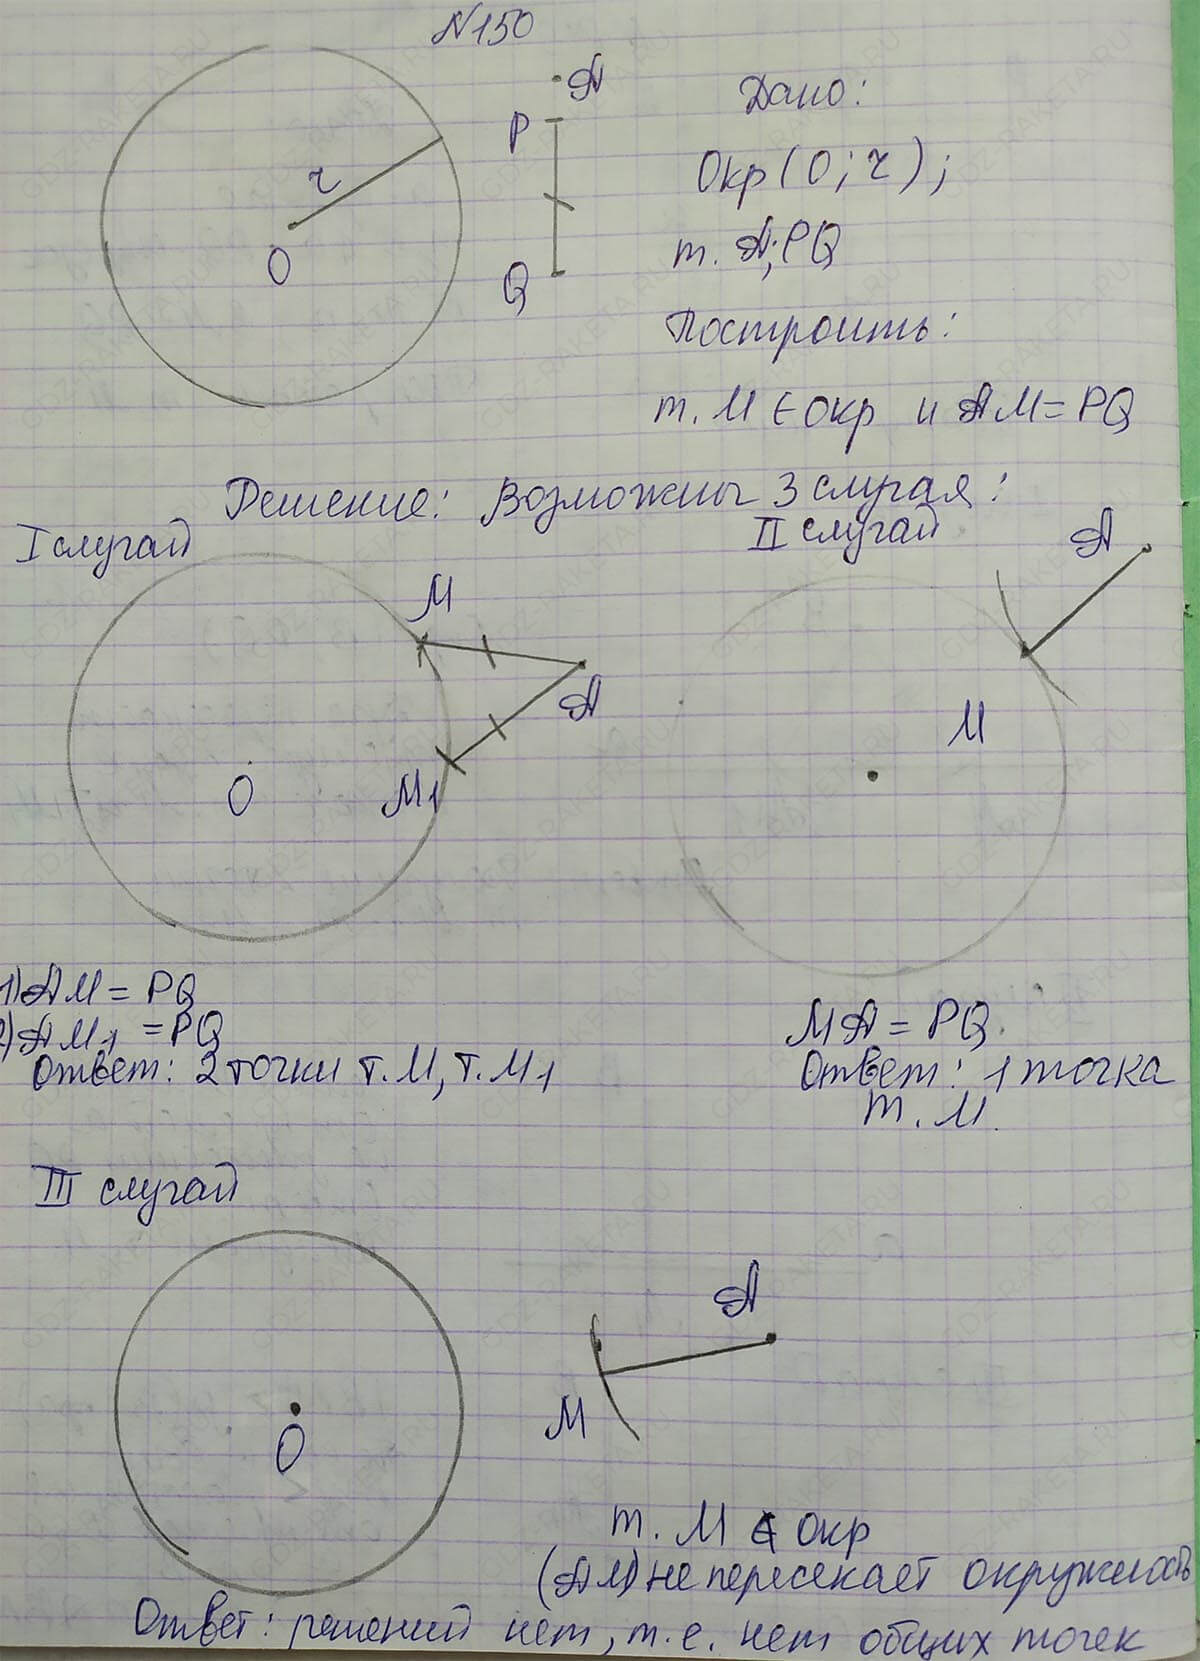 N150
A
P
r
O
Q
Дано:
Окр (O; r);
т. A; PQ
Построить:
т. M ∈ окр и AM = PQ
Решение: Возможны 3 случая:
I случай
II случай
M
A
O
M1
A
M
1) AM = PQ
2) AM1 = PQ
Ответ: 2 точки т. M, т. M1
MA = PQ.
Ответ: 1 точка
т. M.
III случай
A
M
O
т. M ∉ окр
(AM) не пересекает окружность
Ответ: решений нет, т.е. нет общих точек